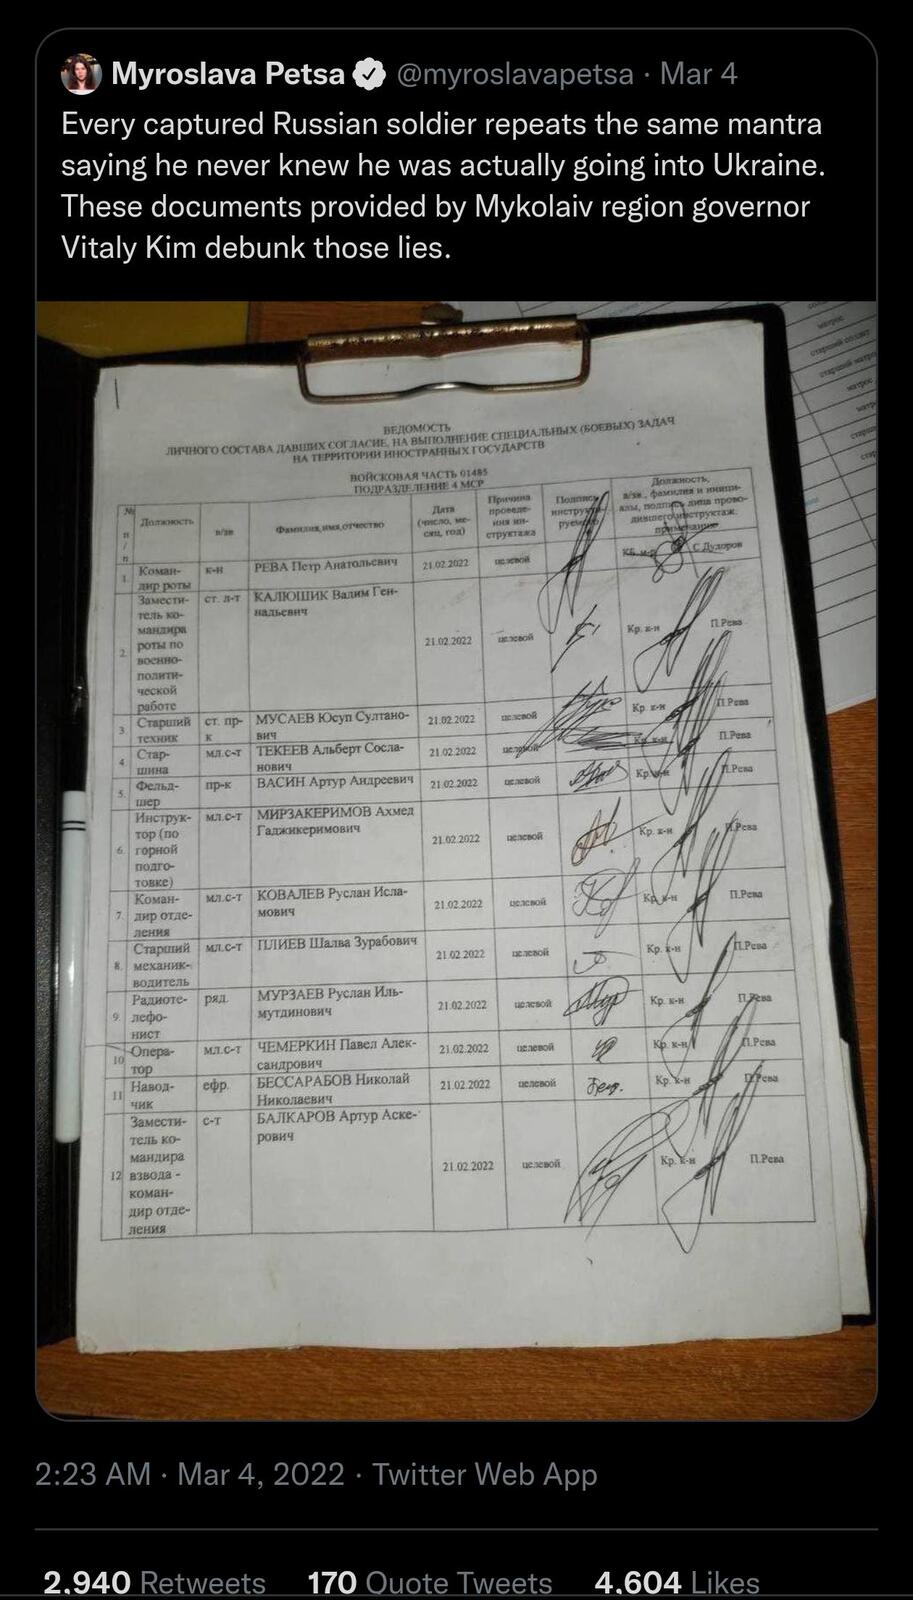 Myroslava Petsa @myroslavapetsa · Mar 4
Every captured Russian soldier repeats the same mantra
saying he never knew he was actually going into Ukraine.
These documents provided by Mykolaiv region governor
Vitaly Kim debunk those lies.
матрос
старший солдат
старший матро
матрос
ВЕДОМОСТЬ
ЛИЧНОГО СОСТАВА ДАВШИХ СОГЛАСИЕ, НА ВЫПОЛНЕНИЕ СПЕЦИАЛЬНЫХ (БОЕВЫХ) ЗАДАЧ
НА ТЕРРИТОРИИ ИНОСТРАННЫХ ГОСУДАРСТВ
ВОЙСКОВАЯ ЧАСТЬ 01485
ПОДРАЗДЕЛЕНИЕ 4 МСР
№
п
/
п
Должность
в/зв
Фамилия,имя,отчество
Дата
(число, ме-
сяц, год)
Причина
проведе-
ния ин-
структажа
Подпись
инструкти-
руемого
Должность,
в/зв., фамилия и иници-
алы, подпись лица прово-
дившего инструктаж,
примечание
1. Коман-
дир роты
к-н
РЕВА Петр Анатольевич
21.02.2022
целевой
С.Дудоров
2. Замести-
тель ко-
мандира
роты по
военно-
полити-
ческой
работе
ст. л-т
КАЛЮШИК Вадим Ген-
надьевич
21.02.2022
целевой
Кр. к-н
П.Рева
3 Старший
техник
ст. пр-
к
МУСАЕВ Юсуп Султано-
вич
21.02.2022
целевой
Кр. к-н
П.Рева
4. Стар-
шина
мл.с-т
ТЕКЕЕВ Альберт Сосла-
нович
21.02.2022
целевой
Кр. к-н
П.Рева
5. Фельд-
шер
пр-к
ВАСИН Артур Андреевич
21.02.2022
целевой
Кр. к-н
П.Рева
6. Инструк-
тор (по
горной
подго-
товке)
мл.с-т
МИРЗАКЕРИМОВ Ахмед
Гаджикеримович
21.02.2022
целевой
Кр. к-н
П.Рева
7. Коман-
дир отде-
ления
мл.с-т
КОВАЛЕВ Руслан Исла-
мович
21.02.2022
целевой
Кр. к-н
П.Рева
8. Старший
механик-
водитель
мл.с-т
ПЛИЕВ Шалва Зурабович
21.02.2022
целевой
Кр. к-н
П.Рева
9. Радиоте-
лефо-
нист
ряд.
МУРЗАЕВ Руслан Иль-
мутдинович
21.02.2022
целевой
Кр. к-н
П.Рева
10 Опера-
тор
мл.с-т
ЧЕМЕРКИН Павел Алек-
сандрович
21.02.2022
целевой
Кр. к-н
П.Рева
11 Навод-
чик
ефр.
БЕССАРАБОВ Николай
Николаевич
21.02.2022
целевой
Кр. к-н
П.Рева
12 Замести-
тель ко-
мандира
взвода -
коман-
дир отде-
ления
с-т
БАЛКАРОВ Артур Аске-
рович
21.02.2022
целевой
Кр. к-н
П.Рева
2:23 AM · Mar 4, 2022 · Twitter Web App
2,940 Retweets 170 Quote Tweets 4,604 Likes